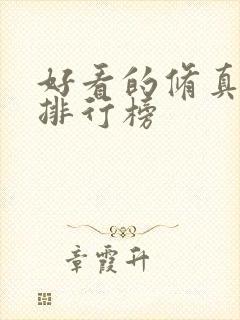 好看的脩真
排行榜
章霞升